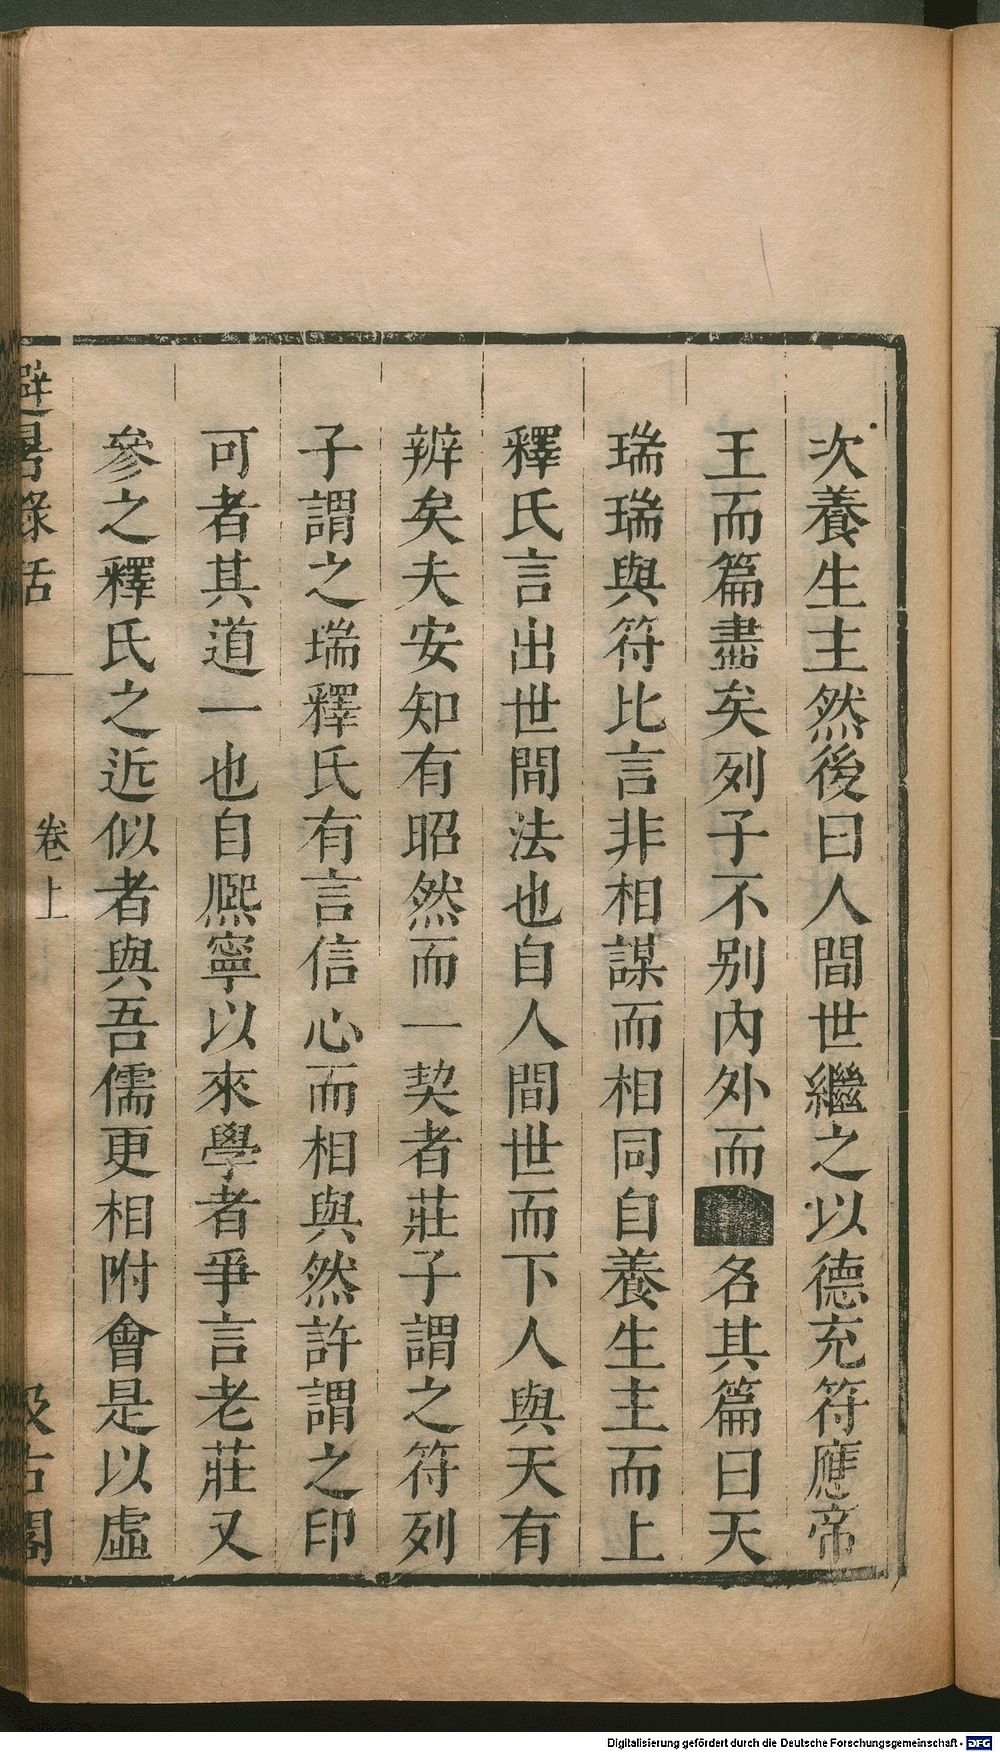 次養生主然後曰人間世繼之以德充符應帝
王而篇盡矣列子不别内外而名其篇曰天
瑞瑞與符比言非相謀而相同自養生主而上
釋氏言出世間法也自人間世而下人與天有
辨矣夫安知有昭然而一契者莊子謂之符列
子謂之瑞釋氏有言信心而相與然許謂之印
可者其道一也自熈寧以來學者爭言老莊又
參之釋氏之近似者與吾儒更相附會是以虛
避暑錄話
卷上
汲古閣
Digitalisierung gefördert durch die Deutsche Forschungsgemeinschaft - DFG